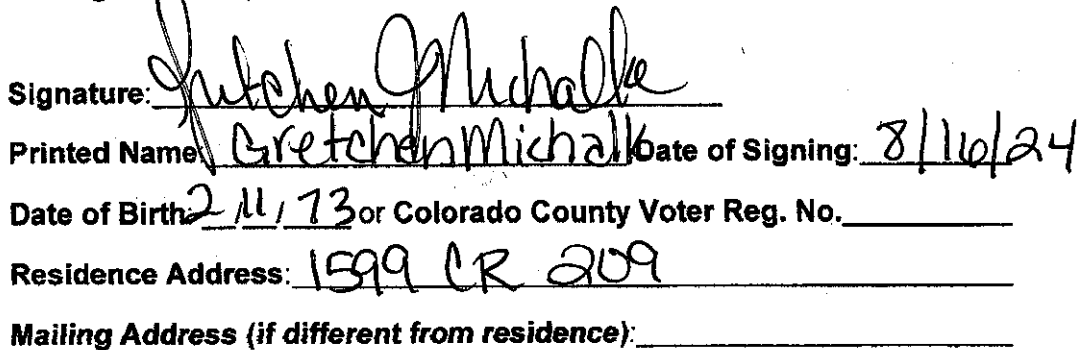 Signature: Gretchen J Michalke
Printed Name Gretchen Michalk Date of Signing: 8/16/24
Date of Birth: 2/11/73 or Colorado County Voter Reg. No.
Residence Address: 1599 CR 209
Mailing Address (if different from residence):